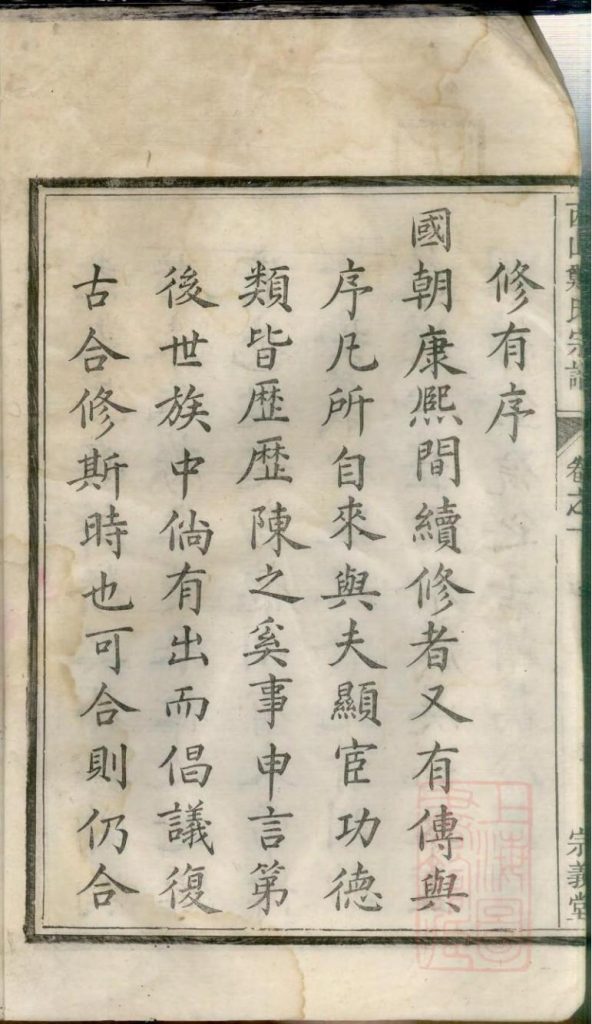 西山鄭氏宗譜
卷之一
宗義堂
修有序
國朝康熙間續修者又有傳與
序凡所自來與夫顯宦功德
類皆歷歷陳之奚事申言第
後世族中倘有出而倡議復
古合修斯時也可合則仍合